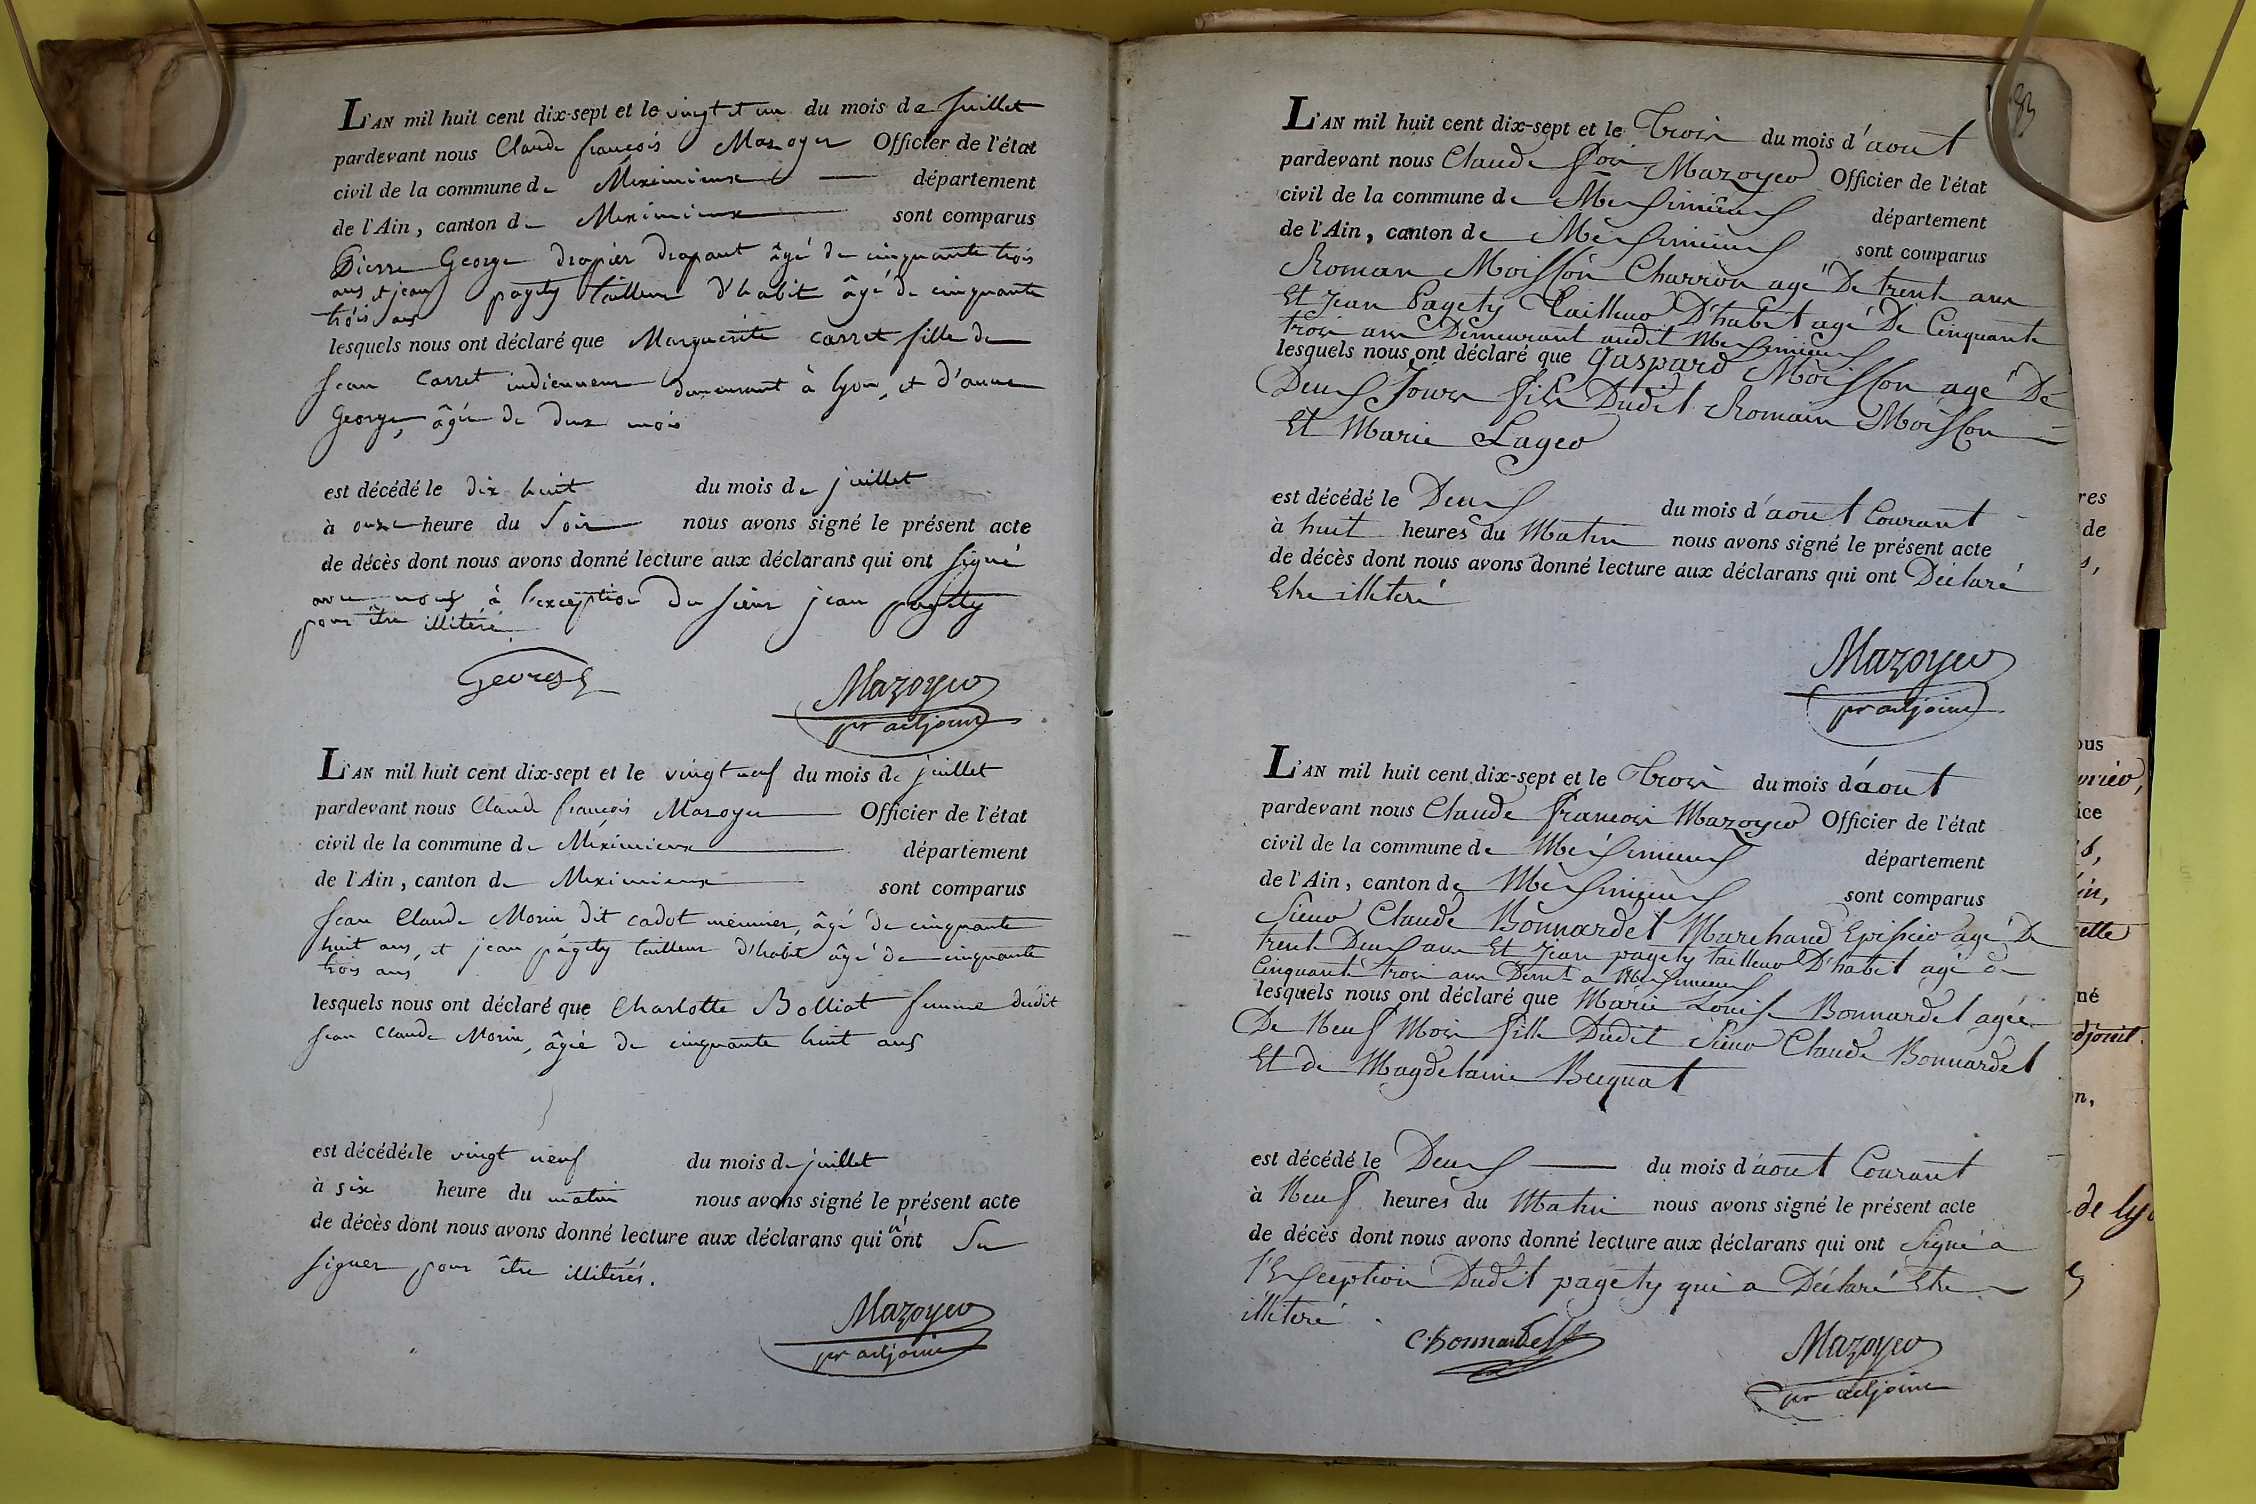 L'AN mil huit cent dix-sept et le vingt et un du mois de juillet
pardevant nous Claude françois Mazoyer Officier de l'état
civil de la commune de Meximieux département
de l'Ain, canton de Meximieux sont comparus
Pierre George drapier drapant âgé de cinquante trois
ans, et jean pagety tailleur d'habit âgé de cinquante
trois ans
lesquels nous ont déclaré que Marguerite Carret fille de
Jean Carret indienneur demeurant à lyon, et d'anne
George, âgée de deux mois
est décédé le dix huit du mois de juillet
à onze heure du Soir nous avons signé le présent acte
de décès dont nous avons donné lecture aux déclarans qui ont signé
avec nous à l'exception du sieur jean pagety
pour être illitéré
George Mazoyer
pr adjoint
L'AN mil huit cent dix-sept et le vingt neuf du mois de juillet
pardevant nous Claude françois Mazoyer Officier de l'état
civil de la commune de Méximieux département
de l'Ain, canton de Meximieux sont comparus
Jean Claude Morin dit cadot meunier, âgé de cinquante
huit ans, et jean pagety tailleur d'habit âgé de cinquante
trois ans
lesquels nous ont déclaré que Charlotte Bolliat femme dudit
Jean Claude Morin, âgée de cinquante huit ans
est décédé le vingt neuf du mois de juillet
à six heure du matin nous avons signé le présent acte
de décès dont nous avons donné lecture aux déclarans qui n'ont Su
signer pour être illitérés.
Mazoyer
pr adjoint
93
L'AN mil huit cent dix-sept et le Trois du mois d'aout
pardevant nous Claude fois Mazoyer Officier de l'état
civil de la commune de Meximieux département
de l'Ain, canton de Meximieux sont comparus
Roman Moisson Charron agé De trente ans
Et Jean Pagety Tailleur D'habit agé De Cinquante
trois ans Demeurant audit Meximieux
lesquels nous ont déclaré que Gaspard Moisson agé De
Deux Jours fils Dudit Romain Moisson
Et Marie Lager
est décédé le Deux du mois d'aout Courant
à huit heures du Matin nous avons signé le présent acte
de décès dont nous avons donné lecture aux déclarans qui ont Déclaré
Etre illiteré
Mazoyer
pr adjoint
L'AN mil huit cent dix-sept et le Trois du mois d'aout
pardevant nous Claude francois Mazoyer Officier de l'état
civil de la commune de Meximieux département
de l'Ain, canton de Meximieux sont comparus
Sieur Claude Bonnardel Marchand Epicier agé De
trente Deux ans Et Jean pagety tailleur D'habit agé de
Cinquante trois ans Demt a Meximieux
lesquels nous ont déclaré que Marie Louise Bonnardel agée
De Neuf Mois fille Dudit Sieur Claude Bonnardel
Et de Magdelaine Bucquat
est décédé le Deux du mois d'aout Courant
à Neuf heures du Matin nous avons signé le présent acte
de décès dont nous avons donné lecture aux déclarans qui ont Signé a
l'Exception Dudit pagety qui a Déclaré Etre
illiteré
C Bonnardel Mazoyer
pr adjoint